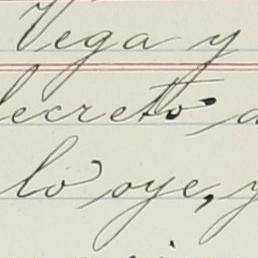 Vega y
decreto
lo oye, y